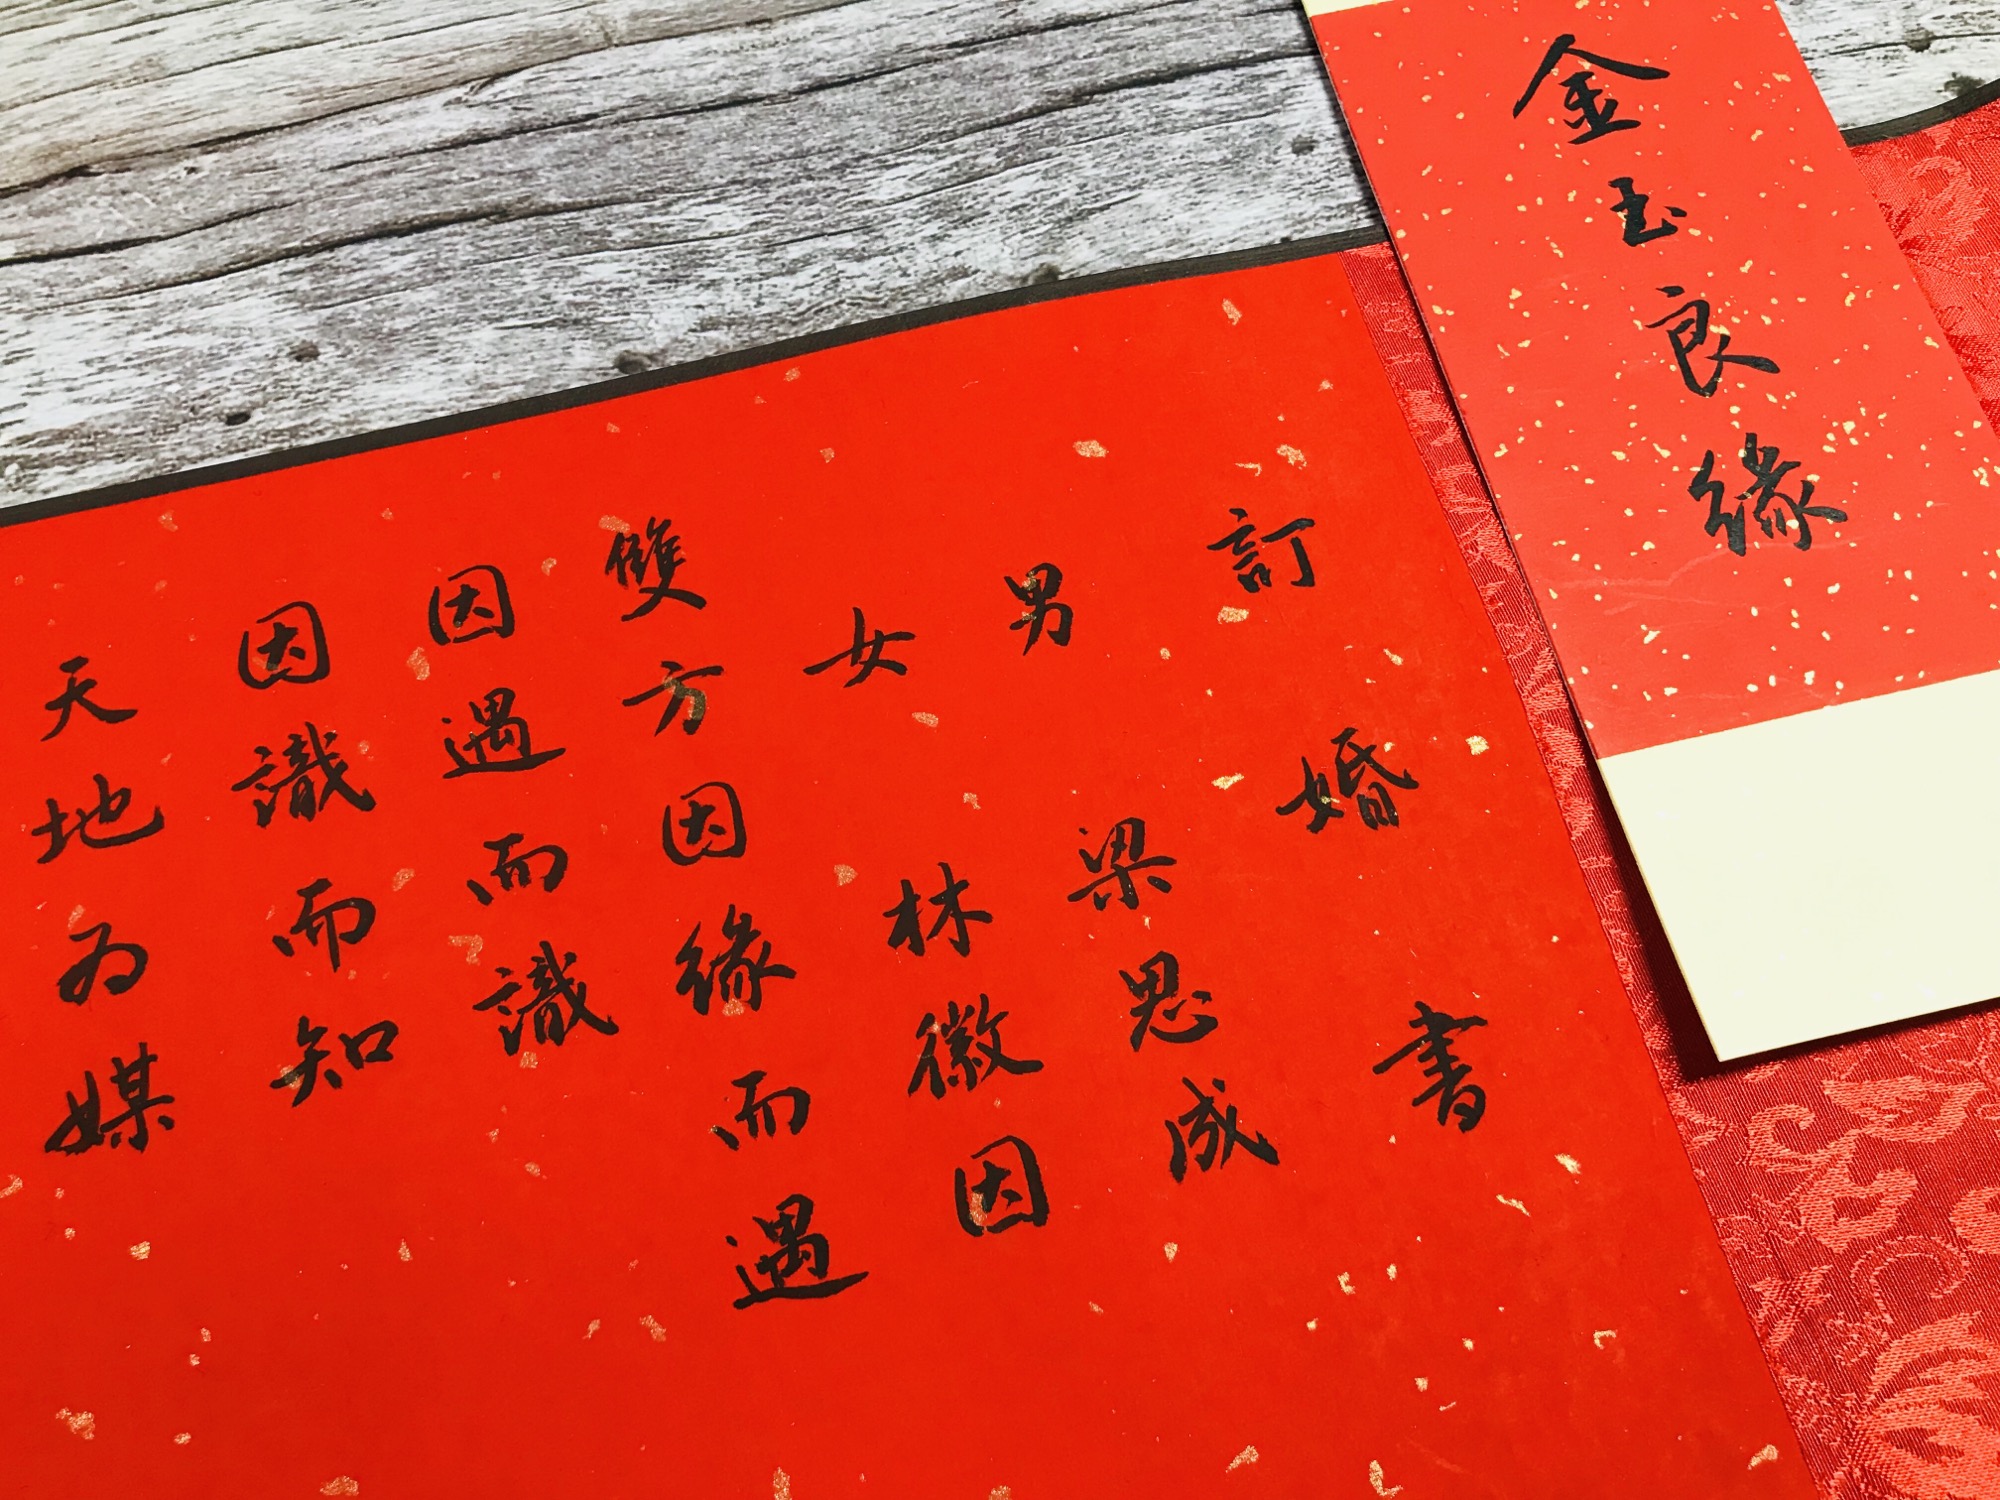 金玉良緣
訂婚書
男 梁思成
女 林徽因
雙方因緣而遇
因遇而識
因識而知
天地為媒